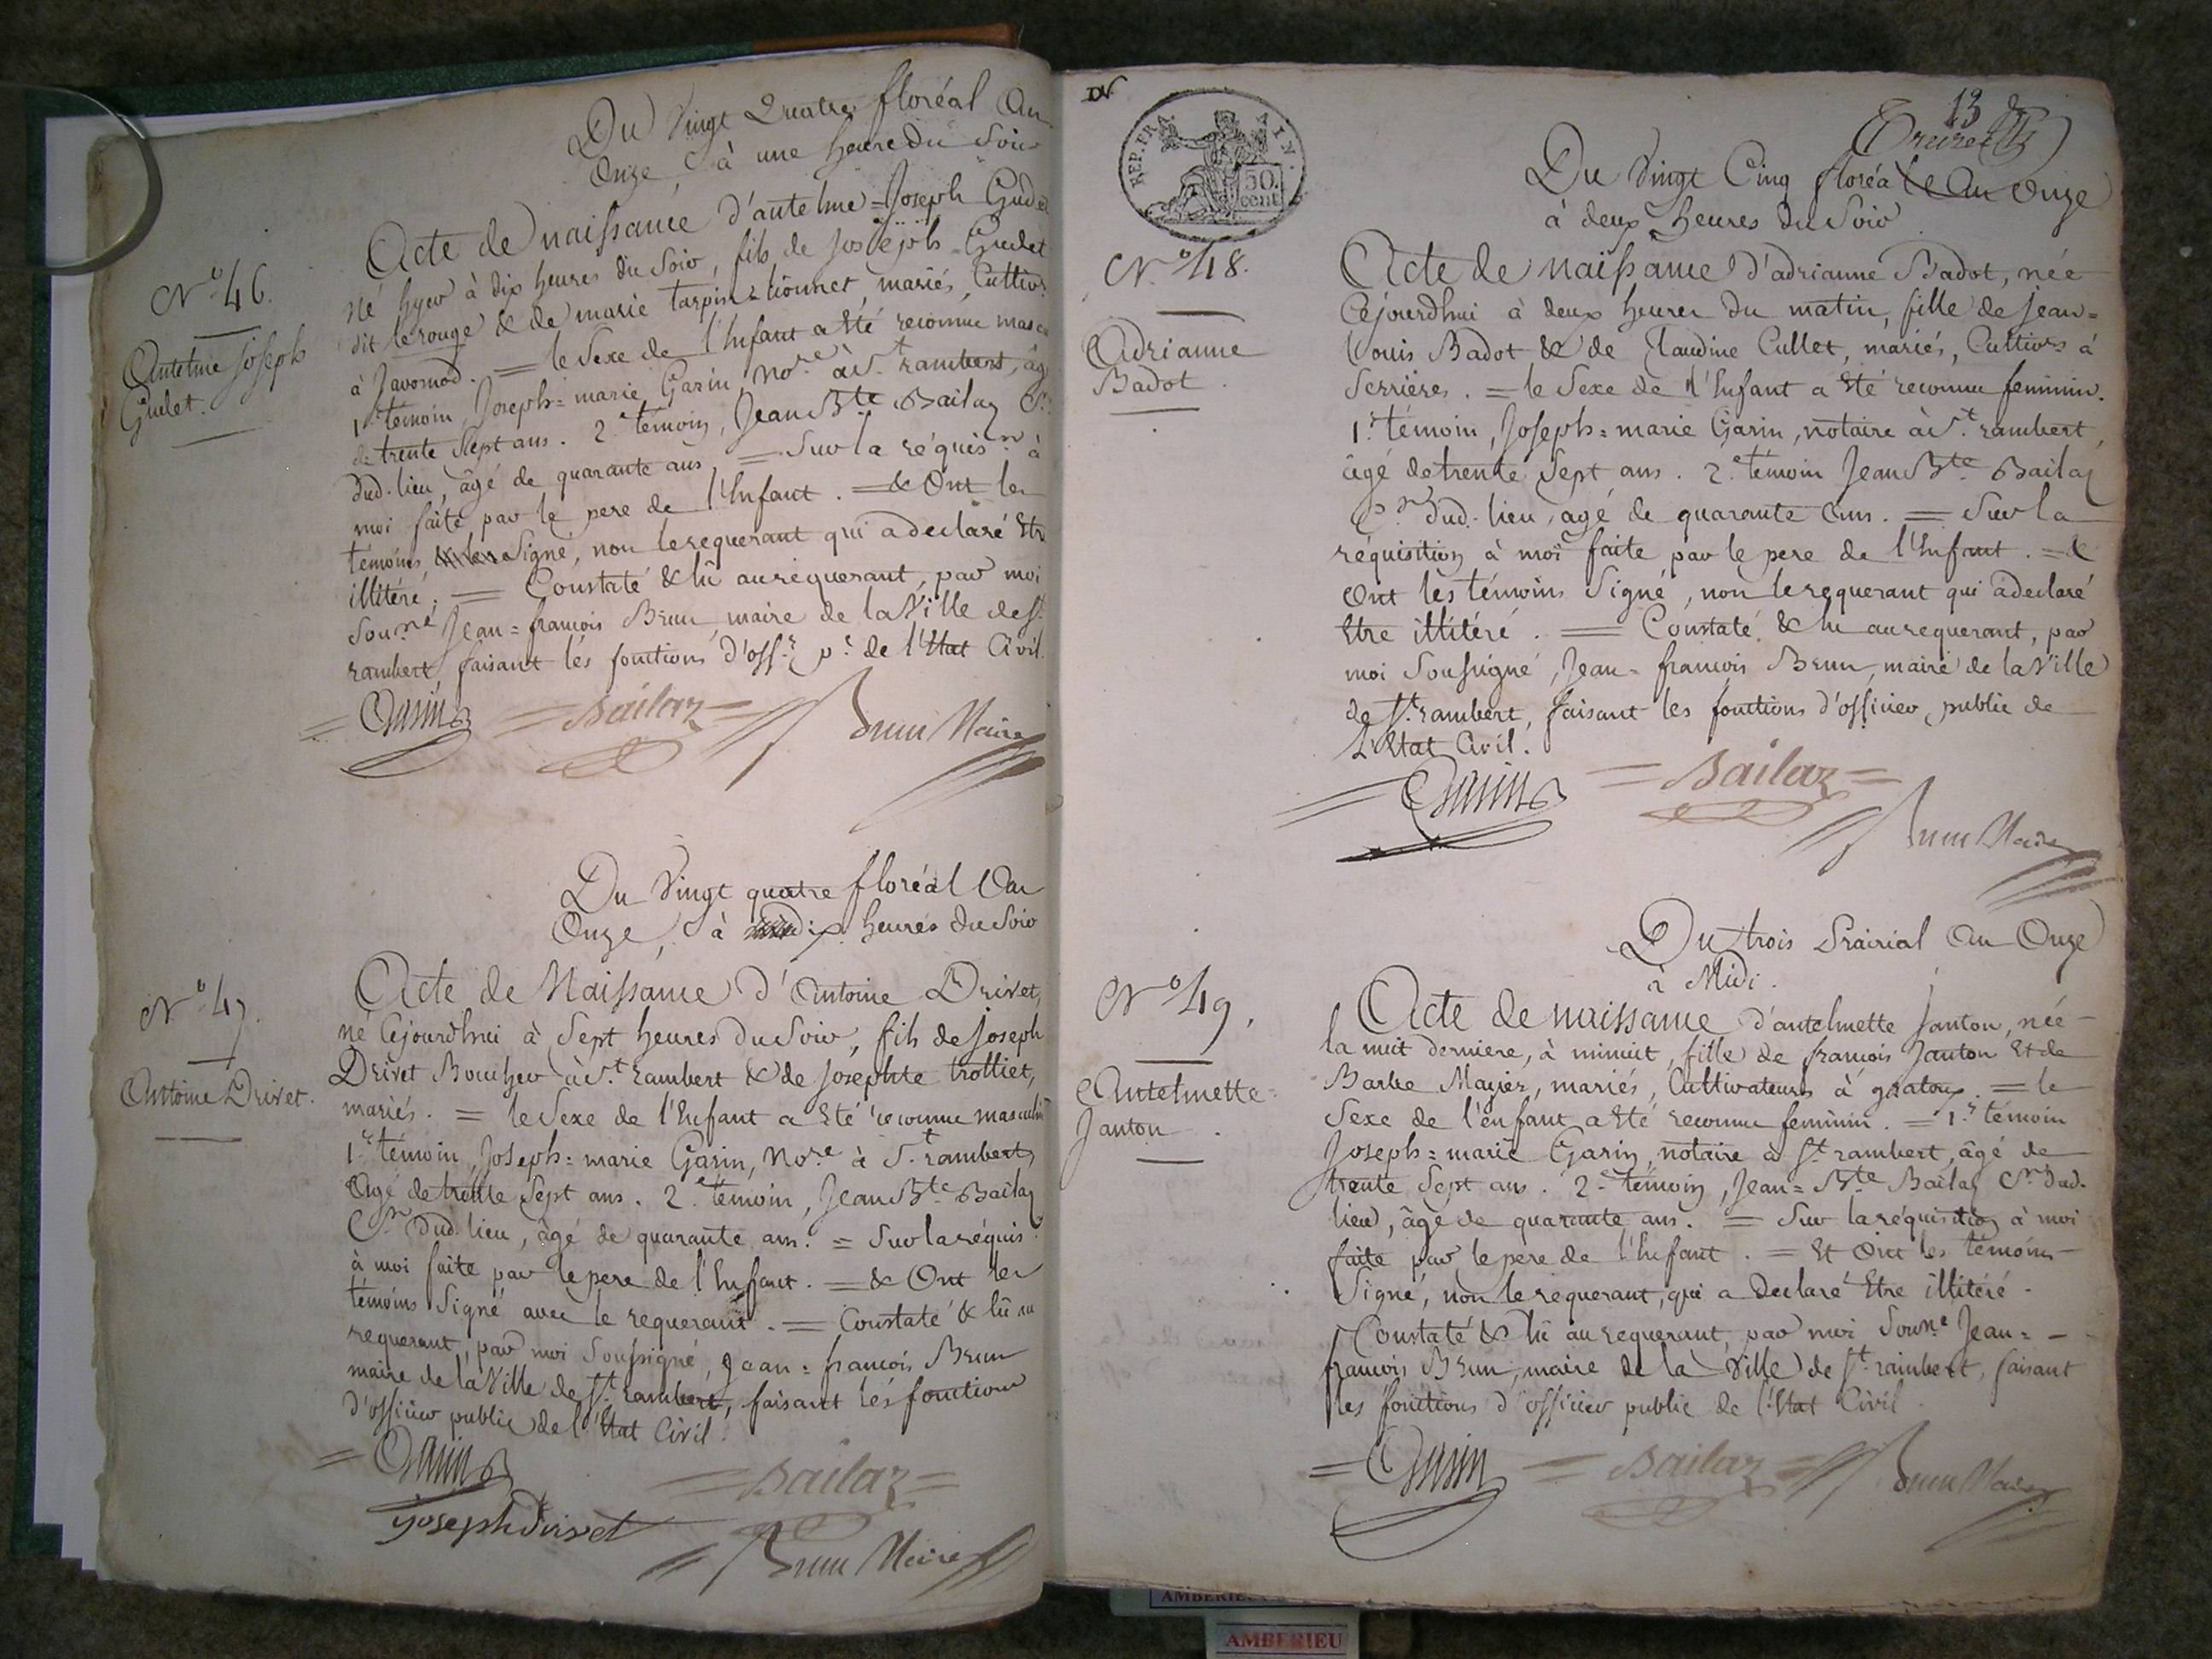 Du Vingt Quatre floréal An
Onze, à une heure du Soir
N.o 46.
Antelme Joseph
Gudet.
Acte de naissance d'antelme = Joseph Gudet
né hyer à dix heures du Soir, fils de Joseph Gudet
dit le rouge & de marie tarpin = lionnet, mariés, Cultivrs
à Javornod. = le Sexe de l'Enfant a Eté reconnu mascu
1.r témoin, Joseph = marie Garin, No.re à S.t rambert, âgé
de trente Sept ans. 2.e témoin, Jean Bte Bailaz C.n
dud. lieu, âgé de quarante ans. = Sur la réquis.n à
moi faite par le pere de l'Enfant. = & Ont les
témoins Signé, non le requerant qui a declaré Etre
illitéré. = Constaté & lû au requerant, par moi
Sou.né Jean = françois Brun, maire de la Ville de S.t
rambert, faisant les fonctions d'off.r p.c de l'Etat Civil.
= Garin = Bailaz = Brun Maire
Du Vingt quatre floréal An
Onze, à dix heures du Soir
N.o 47.
Antoine Drivet.
Acte de Naissance d'Antoine Drivet,
né Cejourdhui à Sept heures du Soir, fils de Joseph
Drivet Boucher à S.t rambert & de Josephte trolliet,
mariés. = le Sexe de l'Enfant a Eté reconnu masculin
1.r témoin, Joseph = marie Garin, No.re à S.t rambert,
Agé de trente Sept ans. 2.e témoin, Jean Bte Bailaz
C.n dud. lieu, âgé de quarante ans. = Sur la réquis.n
à moi faite par le pere de l'Enfant. = & Ont les
témoins Signé avec le requerant. = Constaté & lû au
requerant, par moi Soussigné, Jean = françois Brun
maire de la Ville de S.t rambert, faisant les fonctions
d'officier public de l'Etat Civil.
= Garin = Bailaz =
joseph drivet
Brun Maire
13
Treize
REP. FRA
50. cent
Du Vingt Cinq floréal An Onze
à deux heures du Soir
N.o 48.
Adrianne
Badot.
Acte de naissance d'adrianne Badot, née
Cejourdhui à deux heures du matin, fille de Jean =
Louis Badot & de Claudine Cullet, mariés, Cultivrs à
Serrières. = le Sexe de l'Enfant a Eté reconnu feminin.
1.r témoin, Joseph = marie Garin, notaire à S.t rambert,
âgé de trente Sept ans. 2.e témoin Jean Bte Bailaz
C.n dud. lieu, agé de quarante ans. = Sur la
réquisition à moi faite par le pere de l'Enfant. = &
Ont les témoins Signé, non le requerant qui a declaré
Etre illitéré. = Constaté & lu au requerant, par
moi Soussigné, Jean = françois Brun, maire de la Ville
de S.t rambert, faisant les fonctions d'officier public de
L'Etat Civil.
Garin = Bailaz =
Brun Maire
Du trois Prairial An Onze
à Midi.
N.o 49.
Antelmette
Janton.
Acte de naissance d'antelmette Janton, née
la nuit derniere, à minuit, fille de françois Janton Et de
Barbe Mayer, mariés, Cultivateurs à gratoux. = le
Sexe de l'enfant a Eté reconnu feminin. = 1.r témoin
Joseph = marie Garin, notaire à S.t rambert, âgé de
trente Sept ans. 2.e témoin, Jean = Bte Bailaz C.n dud.
lieu, âgé de quarante ans. = Sur la réquisition à moi
faite par le pere de l'Enfant. = Et Ont les témoins
Signé, non le requerant, qui a declaré Etre illitéré.
Constaté & lû au requerant, par moi Soun.é Jean =
françois Brun, maire de la Ville de S.t rambert, faisant
les fonctions d'officier public de l'Etat Civil.
= Garin = Bailaz = Brun Maire
AMBERIEU
AMBERIEU